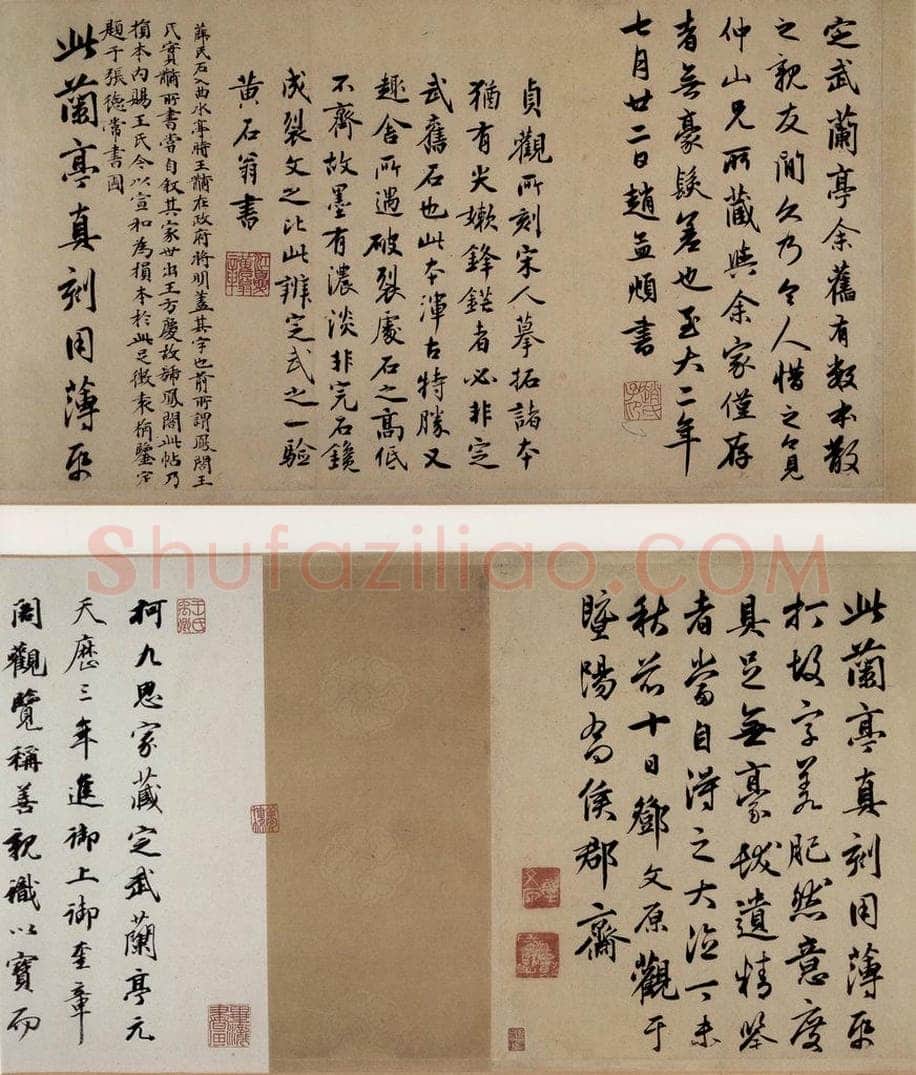 定武蘭亭余舊有數本散
之親友間久乃令人惜之今見
仲山兄所藏與余家僅存
者無豪髮差也至大二年
七月廿二日趙孟頫書
貞觀所刻宋人摹拓諸本
猶有尖嫩鋒鋩者必非定
武舊石也此本渾古特勝又
趣舍所遇破裂處石之高低
不齊故墨有濃淡非完石鐫
成裂文之比此辨定武之一驗
黄石翁書
薛氏石入西水亭時王黼在政府將明蓋其字也前所謂鳳閣王
氏實黼所書嘗自叙其家世出王方慶故號鳳閣此帖乃
損本内賜王氏今以宣和為損本於此足徴袁桷鑒定
題于張德常書園
此蘭亭真刻用薄帋
Shufaziliao.COM
此蘭亭真刻用薄帋
打故字差肥然意度
具足無豪髮遺精鑒
者當自得之大德丁未
秋八月十日鄧文原觀于
暨陽君侯郡齋
柯九思家藏定武蘭亭元
天曆三年進御上御奎章
閣觀覽稱善親識以寶而